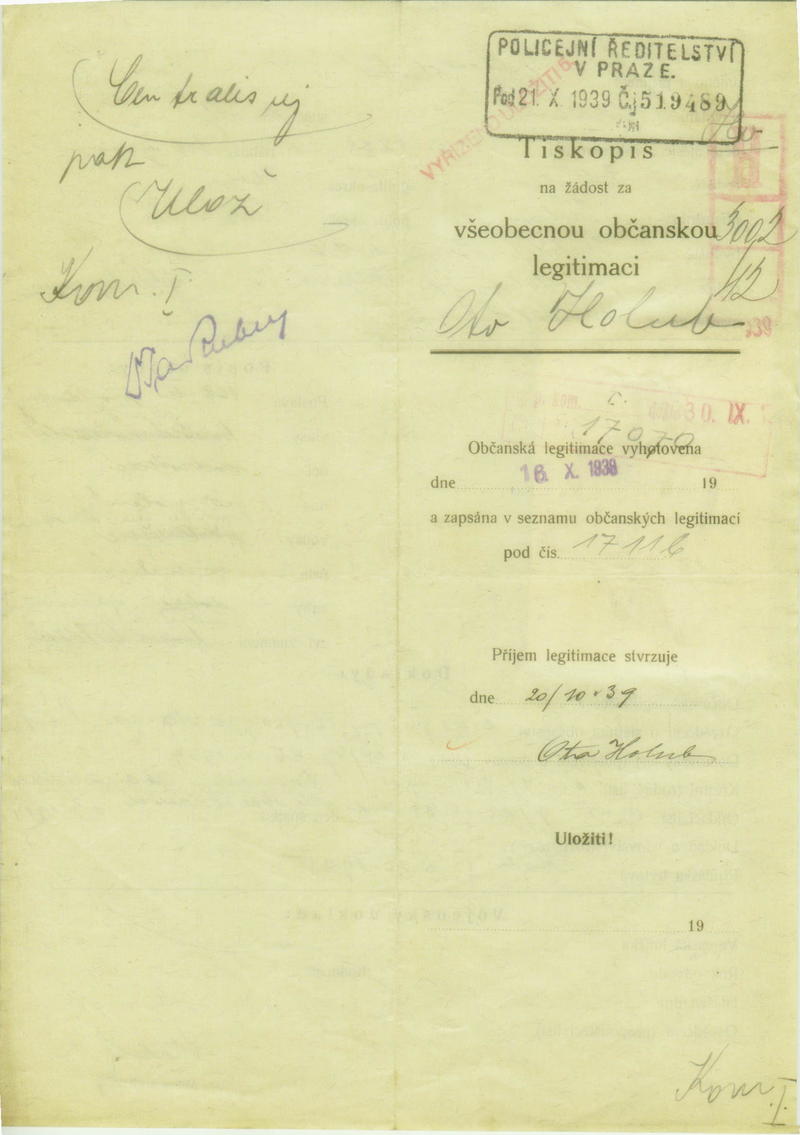 Centralisuj
pak
Ulož
Kom. I.
POLICEJNÍ ŘEDITELSTVÍ
V PRAZE.
Pod 21. X. 1939 Čj 519489
Tiskopis
na žádost za
všeobecnou občanskou
legitimaci
3092
12
Oto Holub
39
30. IX.
č.
17070
Občanská legitimace vyhotovena
dne 16. X. 1939 19
a zapsána v seznamu občanských legitimací
pod čís. 17116
Příjem legitimace stvrzuje
dne 20/10 39
Oto Holub
Uložiti!
19
Kom. I.